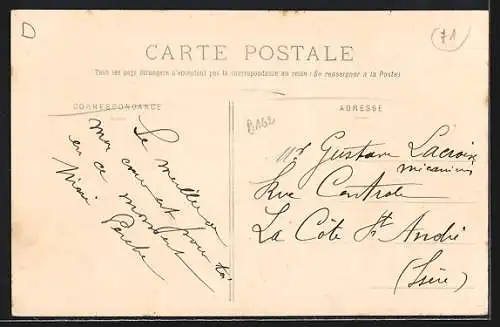 D
71
CARTE POSTALE
Tous les pays étrangers n'acceptent pas la correspondance au recto (Se renseigner à la Poste)
CORRESPONDANCE
ADRESSE
B162
Le meilleur
mon cœur est pour toi
en ce moment
Mimi
Mr Gustave Lacroix
mécanicien
Rue Centrale
La Côte St André
(Isère)